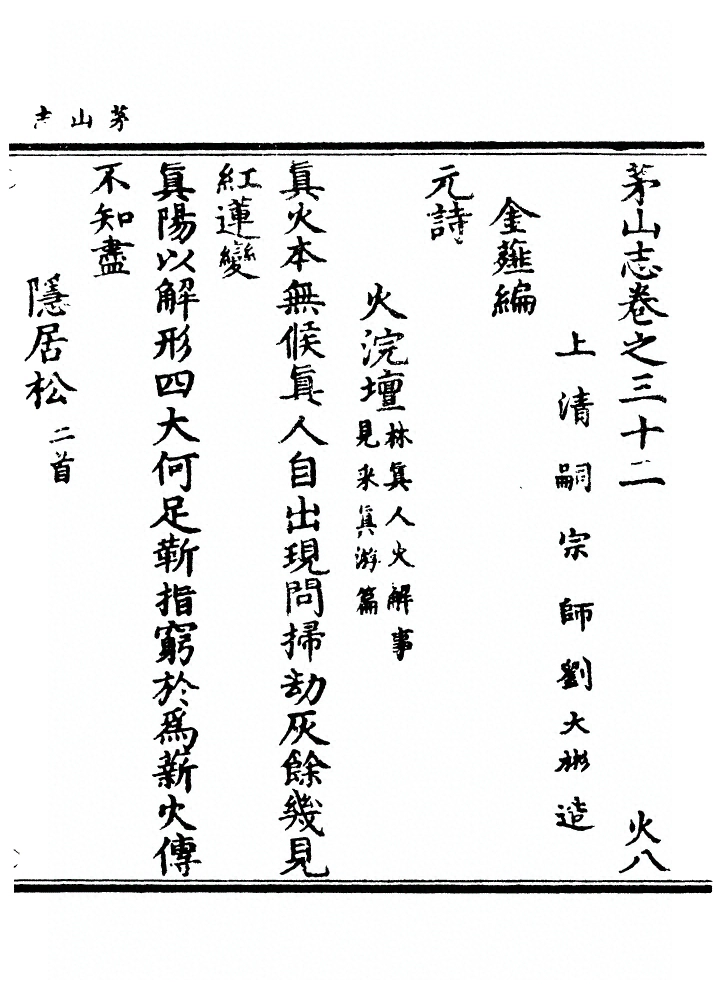 茅山志
茅山志卷之三十二
火八
上清嗣宗師劉大彬造
金薤編
元詩
火浣壇林眞人火解事
見采眞游篇
眞火本無候眞人自出現問掃劫灰餘幾見
紅蓮變
眞陽以解形四大何足蘄指窮於爲薪火傳
不知盡
隱居松二首